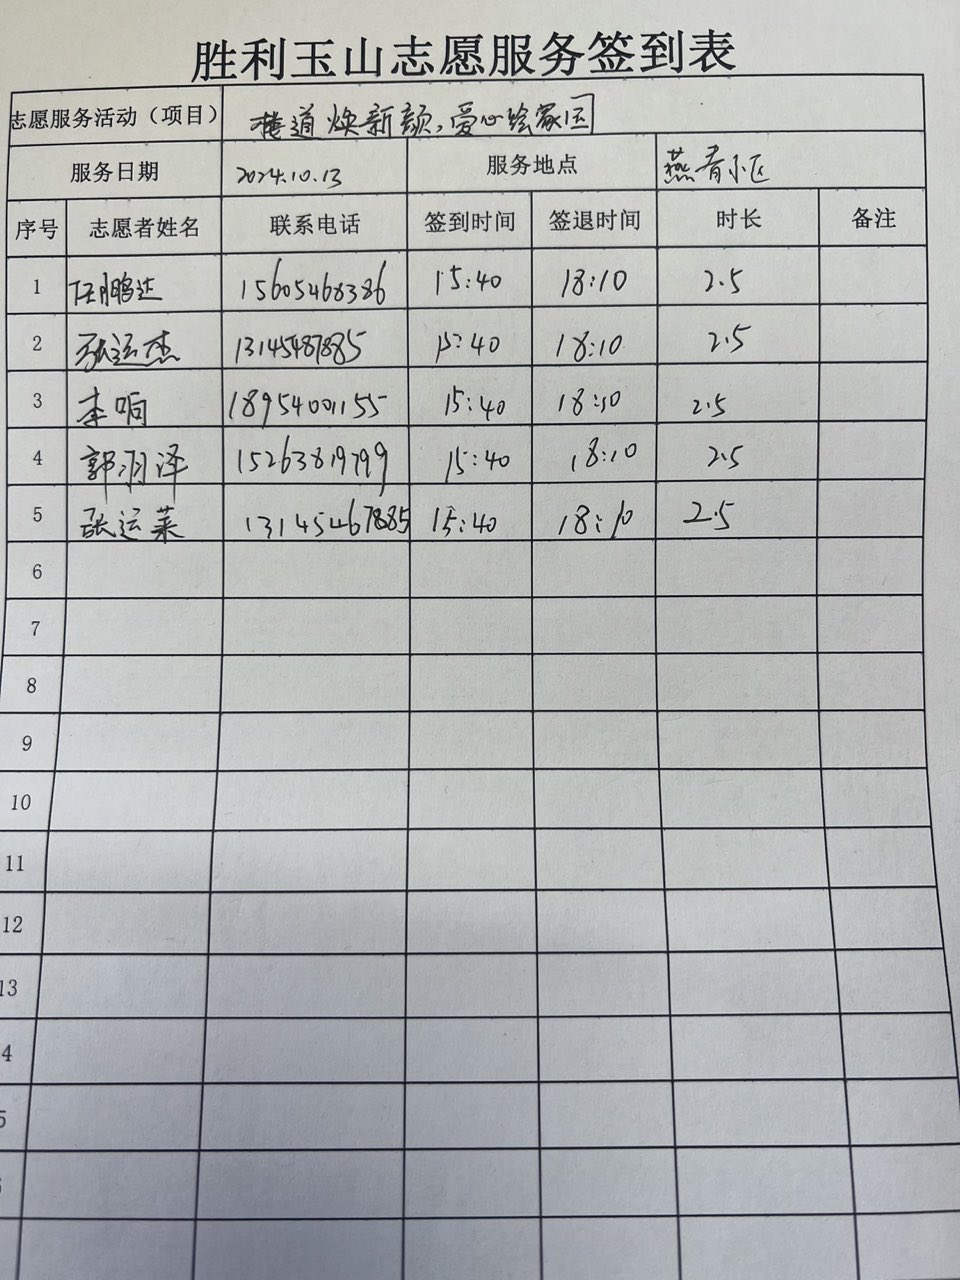 胜利玉山志愿服务签到表
志愿服务活动（项目） 楼道焕新颜，爱心绘家园
服务日期 2024.10.13 服务地点 燕青小区
序号 志愿者姓名 联系电话 签到时间 签退时间 时长 备注
1 任鹏达 15605468386 15:40 18:10 2.5
2 张运杰 13145487885 15:40 18:10 2.5
3 李响 18954001155 15:40 18:10 2.5
4 郭羽泽 15263819799 15:40 18:10 2.5
5 张运莱 13145467885 15:40 18:10 2.5
6
7
8
9
10
11
12
13
4
5